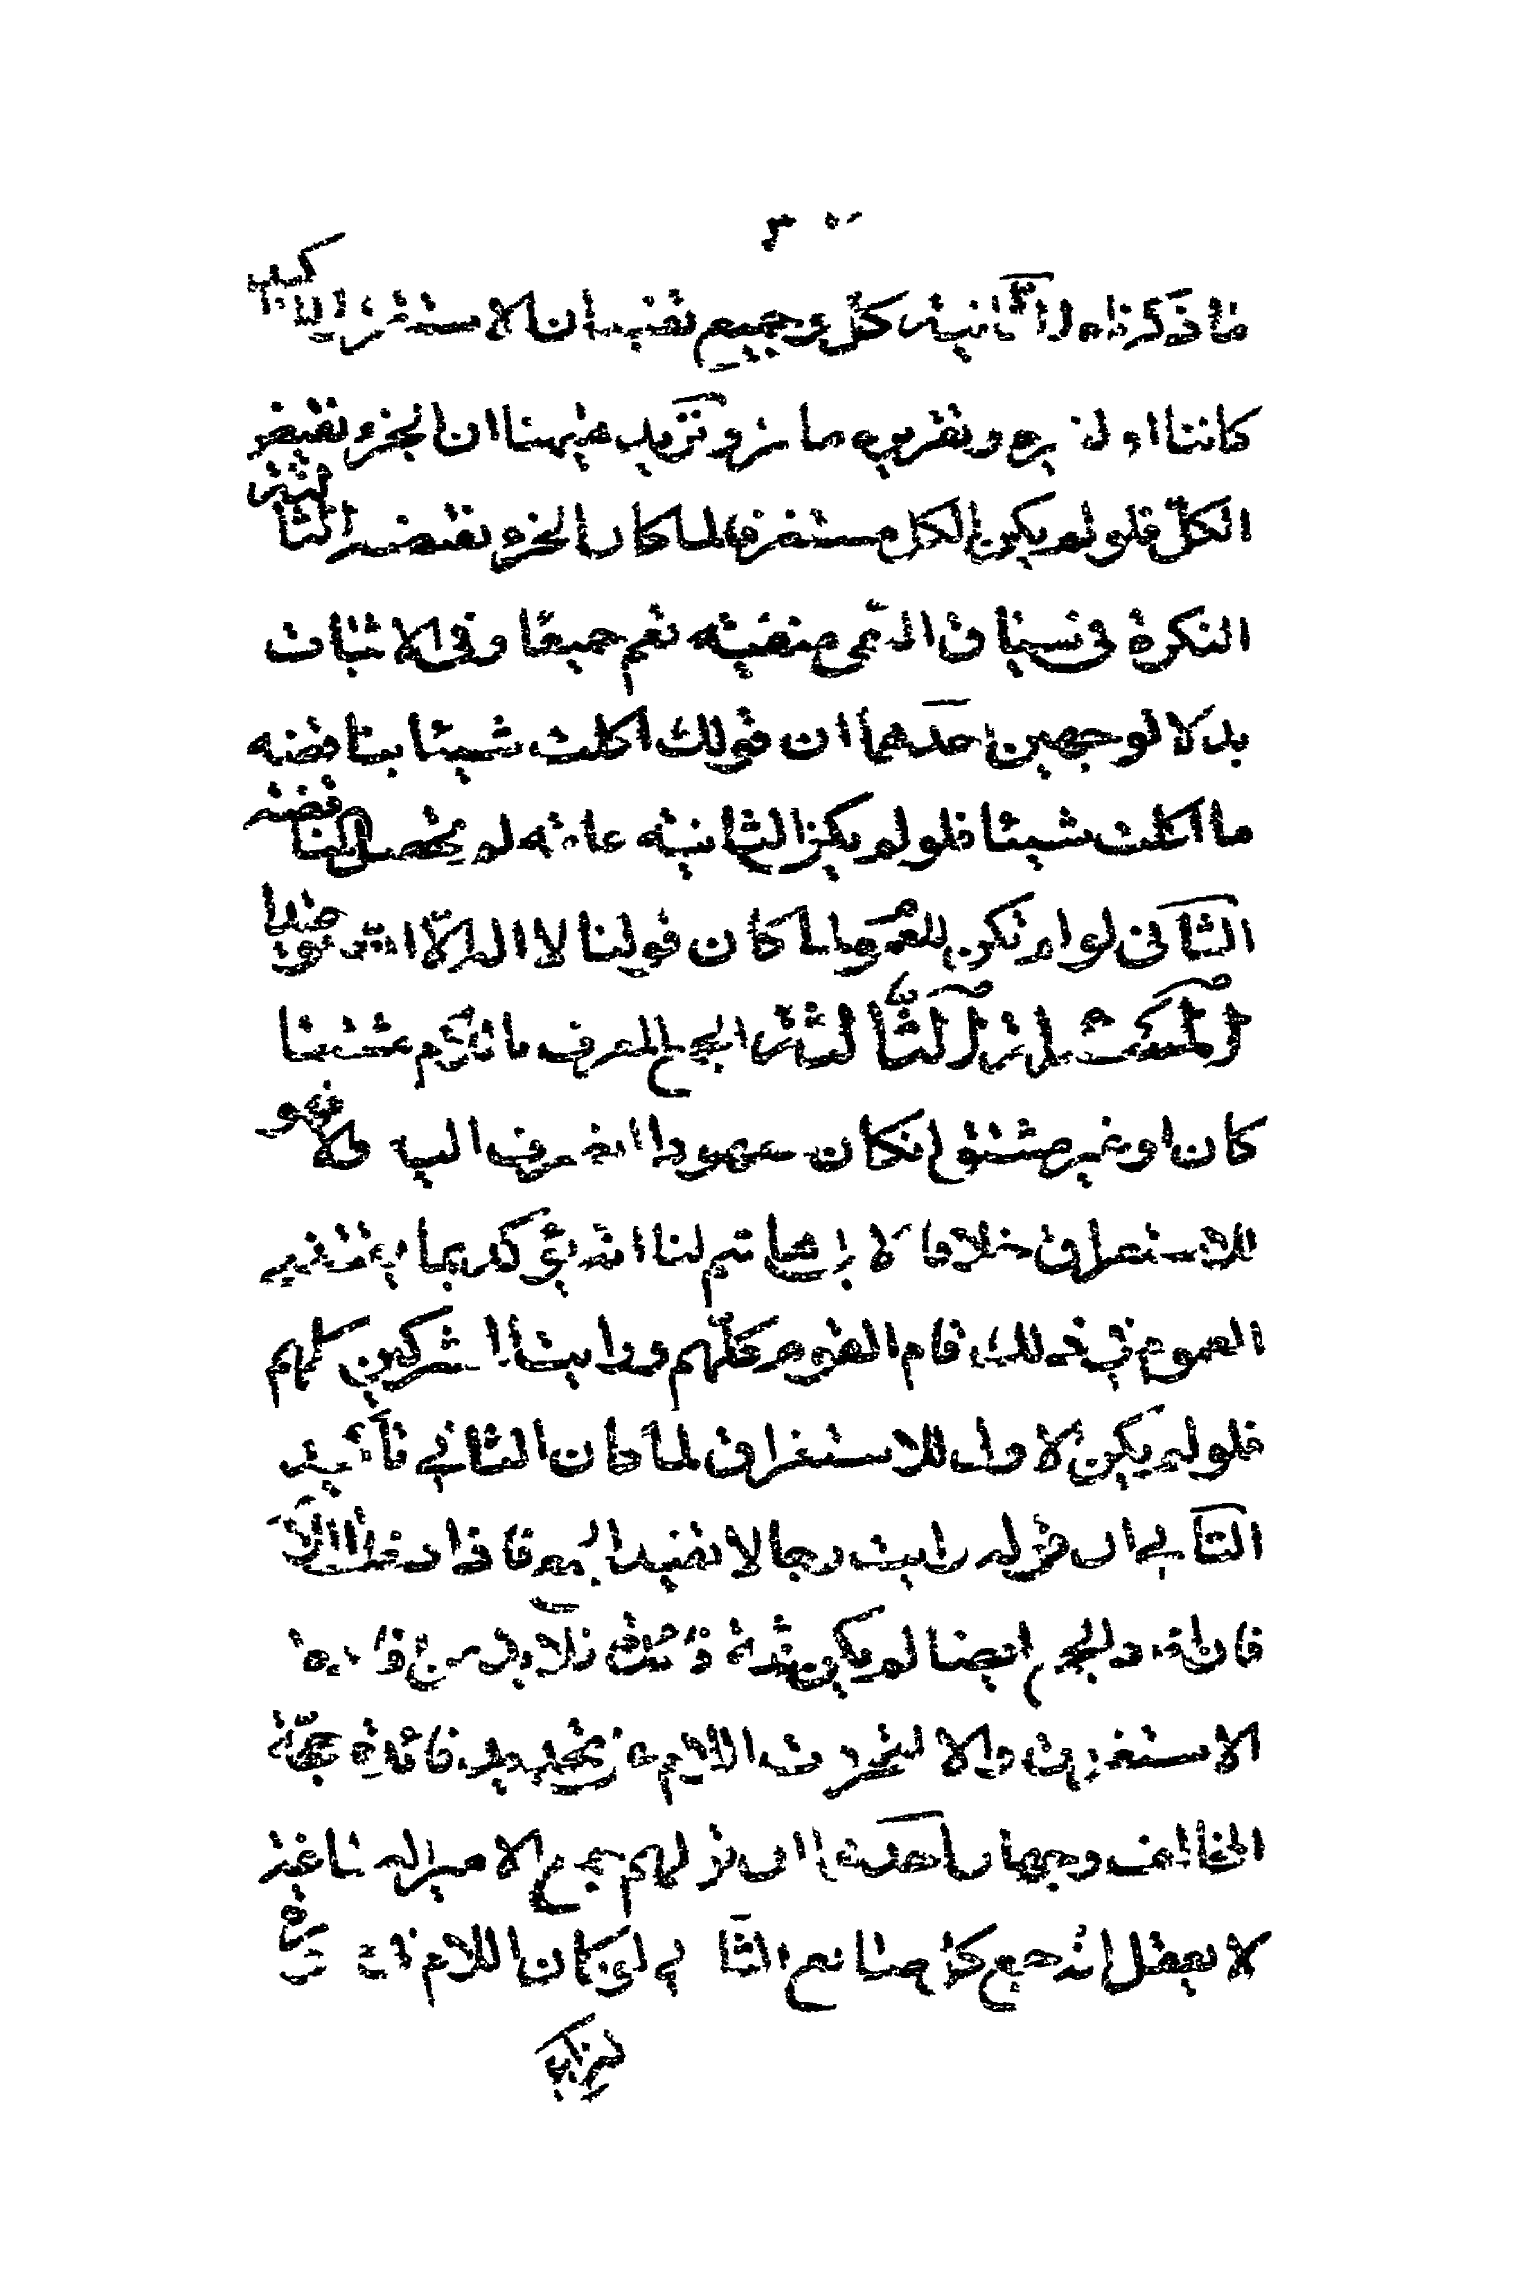 ما ذكرناه الثانية كل وجميع تفيدان الاستغراق
كانتا او لم وتقريره ما مر وتزيد هيهنا ان الجزء نقيض
الكلّ فلو لم يكن الكل مستغرقا لما كان الجزء نقيضه الثالثة
النكرة في سياق النفى منفيّه تعم جميعا وفي الاثبات
بدلا لوجهين احدهما ان قولك اكلت شيئا يناقضه
ما اكلت شيئا فلو لم يكن الثانية عامّه لم يحصل المناقضه
الثانى لو لم تكن للعموم لما كان قولنا لا اله الاّ الله توحيدا
المسئلة الثالثة الجمع المعرف باللام مشتقا
كان او غير مشتق ان كان معهودا انصرف اليه والا فهو
للاستغراق خلافا لابى هاشم لنا انه يؤكد بما يقتضيه
العموم في ذلك قام القوم كلّهم ورايت المشركين كلهم
فلو لم يكن الاول للاستغراق لما كان الثاني تأكيد
الثاني ان قوله رايت رجالا تفيد الجمع فاذا دخل الالف
فان افاد الجمع ايضا لم يكن فائدة فلا بد من
الاستغراق والا لتجردت اللام عن تجديد فائدة حجّة
المخالف وجهان احدهما ان قولهم جمع الامير الصاغة
لا يعقل انه جمع كل صانع الثاني لو كان اللام